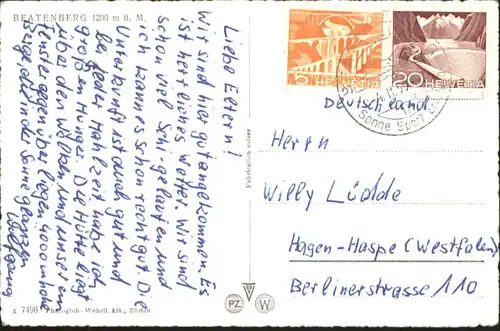 BEATENBERG 1200 m ü. M.
Liebe Eltern!
Wir sind hier gut angekommen. Es
ist herrliches Wetter. Wir sind
schon viel Schi-gelaufen und
ich kann's schon recht gut. Die
Unterkunft ist auch gut und
bei jeder Mahlzeit habe ich
großen Hunger. Die Hütte liegt
über den Wolken und unserem
Fenster gegenüber liegen 4000 m hohe
Berge die in der Sonne glänzen
Wolfgang
g 7496 Photoglob-Wehrli AG., Zürich
Fabrication suisse
5 HELVETIA
20 HELVETIA
Sonne Sport
Deutschland
Herrn
Willy Lüdde
Hagen-Haspe (Westfalen)
Berlinerstrasse 110
PZ W